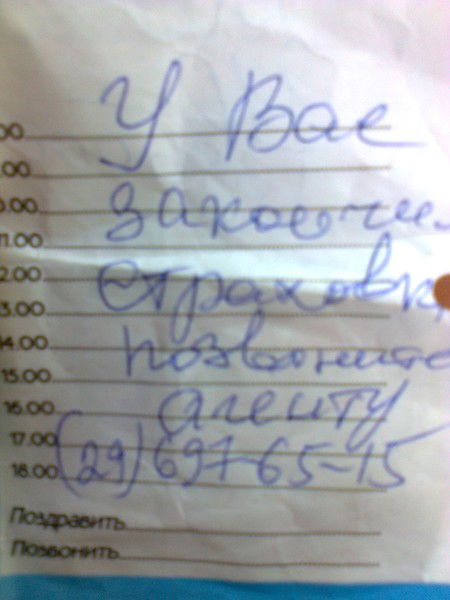 У Вас
00
.00
закончи
0.00
11.00
страховк
2.00
3.00
позвоните
14.00
15.00
агенту
16.00
17.00
(29) 697-65-15
18.00
Поздравить
Позвонить